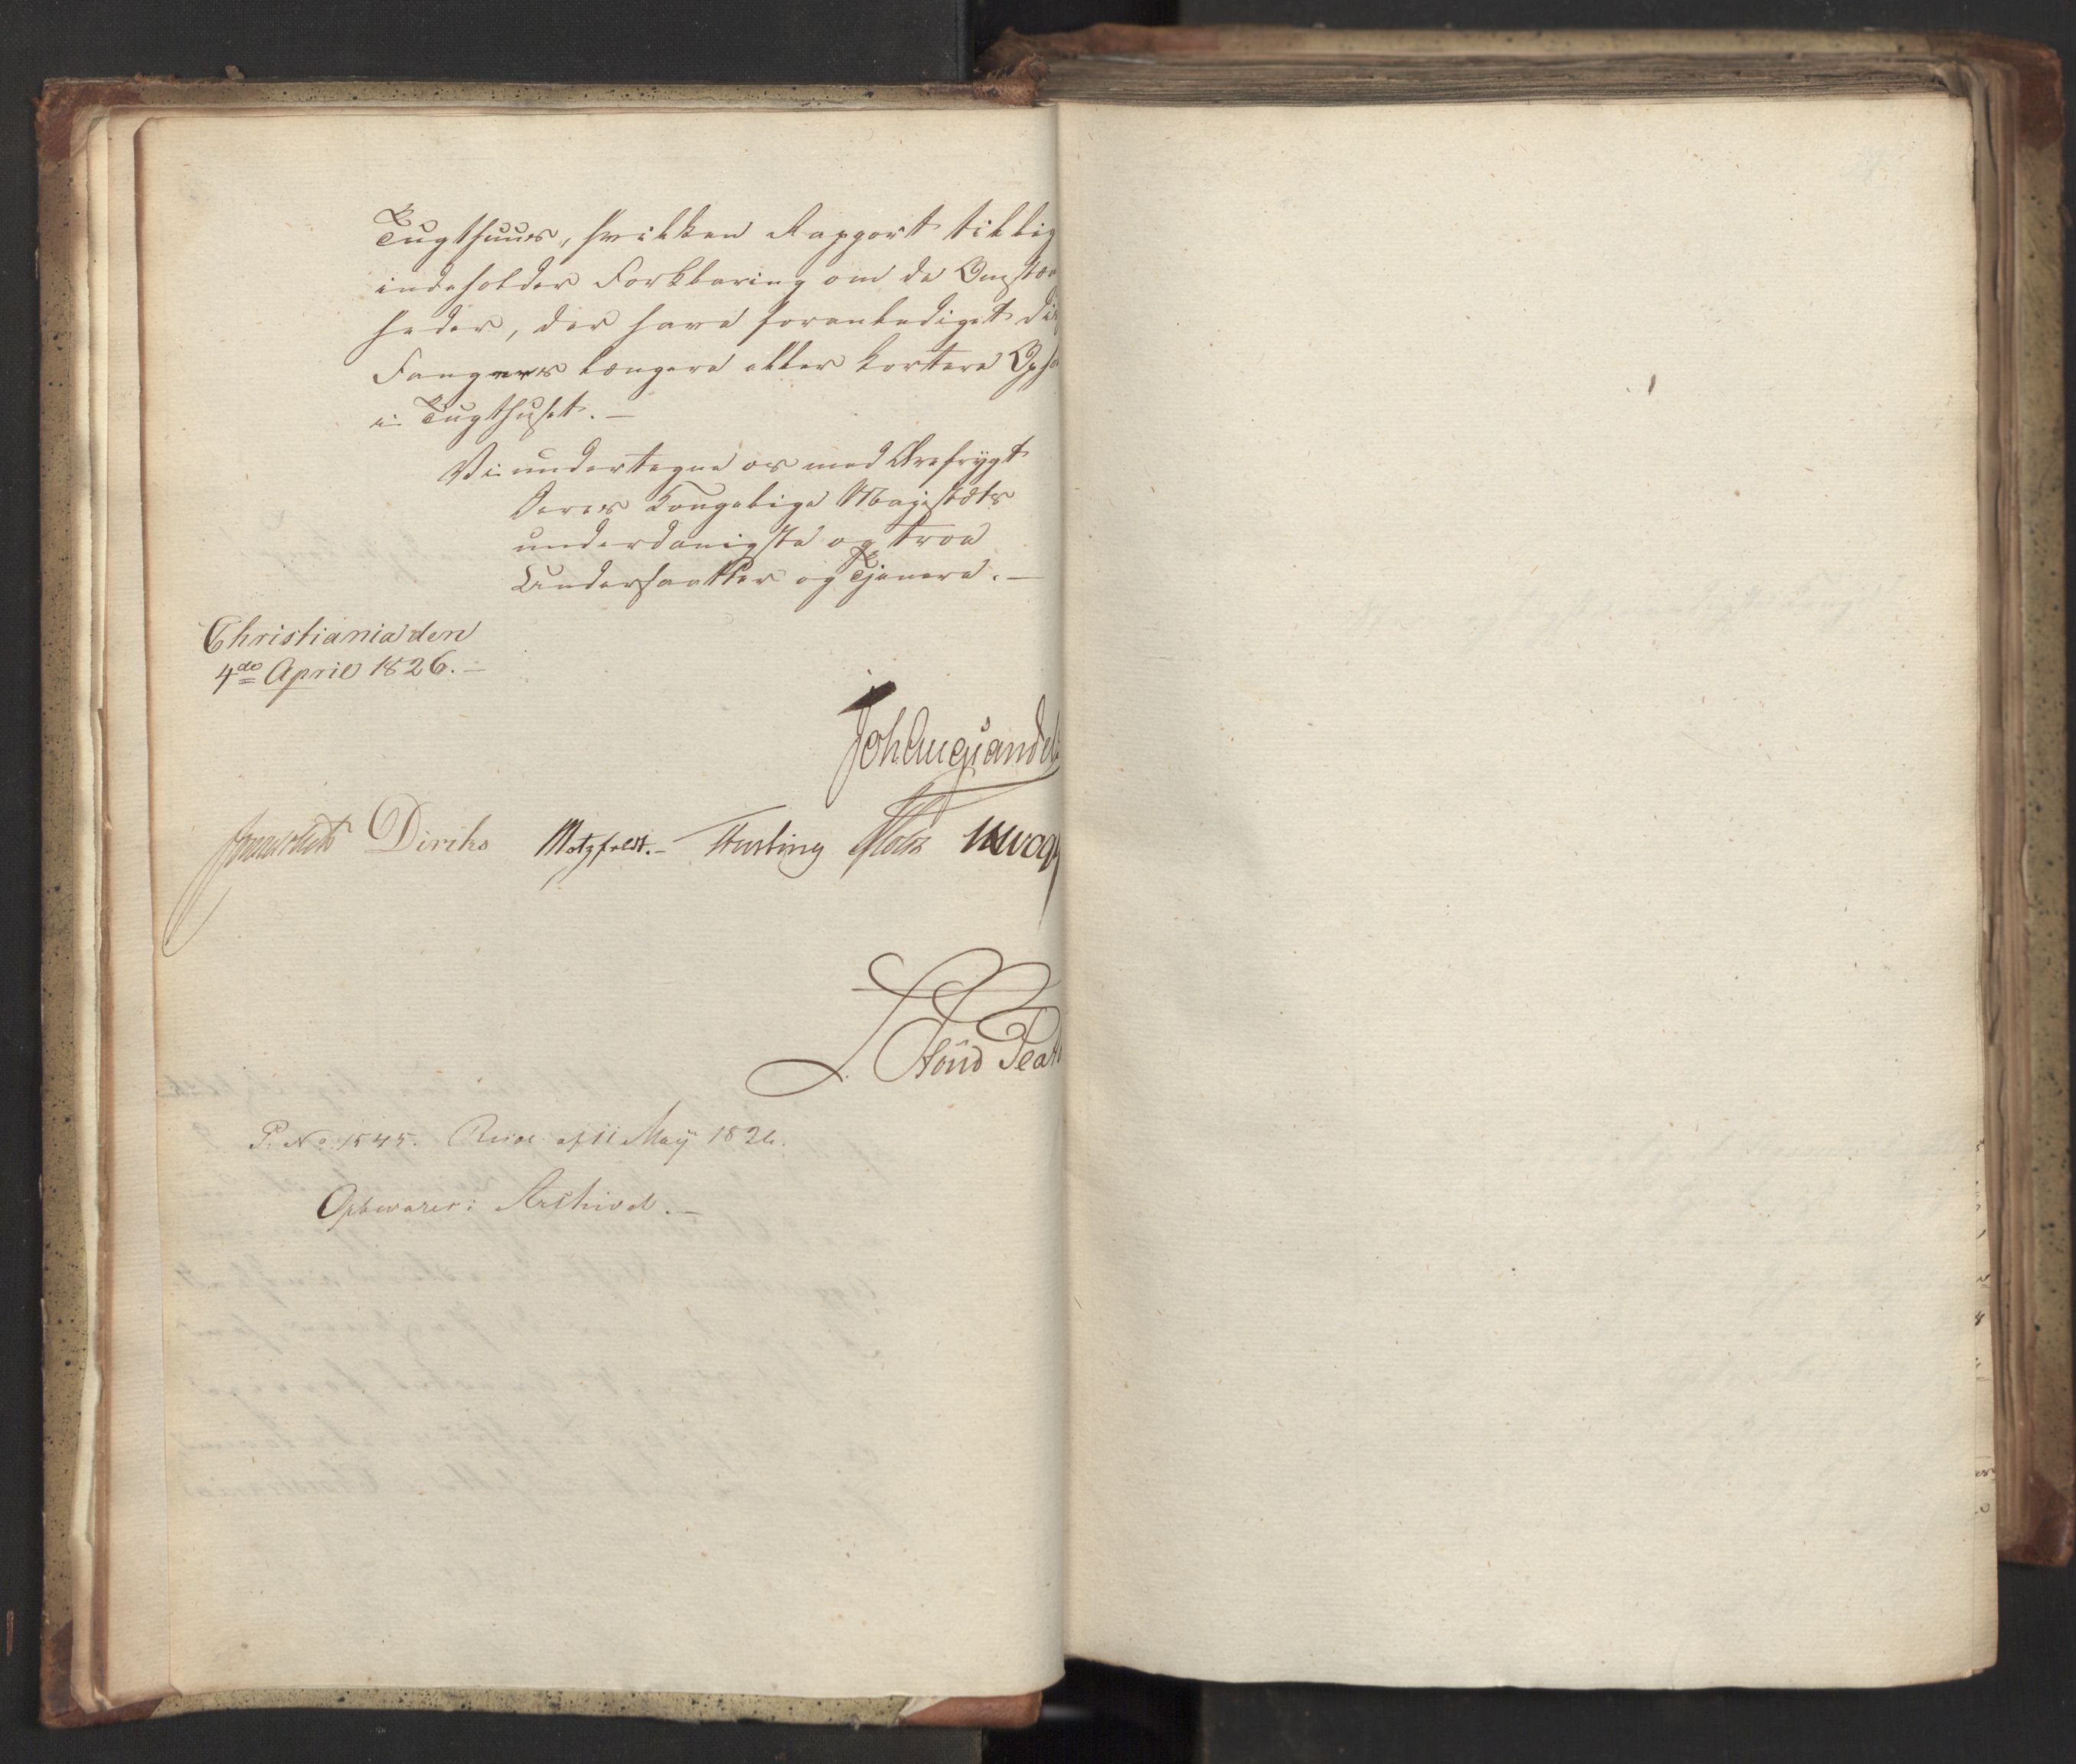 Tugthuus, hvilken Rapport tillig
indeholder Forklaring om de Omstæn
heder, der have foranlediget dis
Fangers længere eller kortere Opho
i Tugthuset. —
Vi undertegne os med Ærefrygt
Deres Kongelige Majestæts
underdanigste og troe
Undersaatter og Tjenere. —
Christiania den
4de April 1826. —
Joh. Aug. Sandel
Diriks Motzfeldt. — Fasting Holst
P. No 1545. af 11 May 1826.
Opbevares i Archivet. —